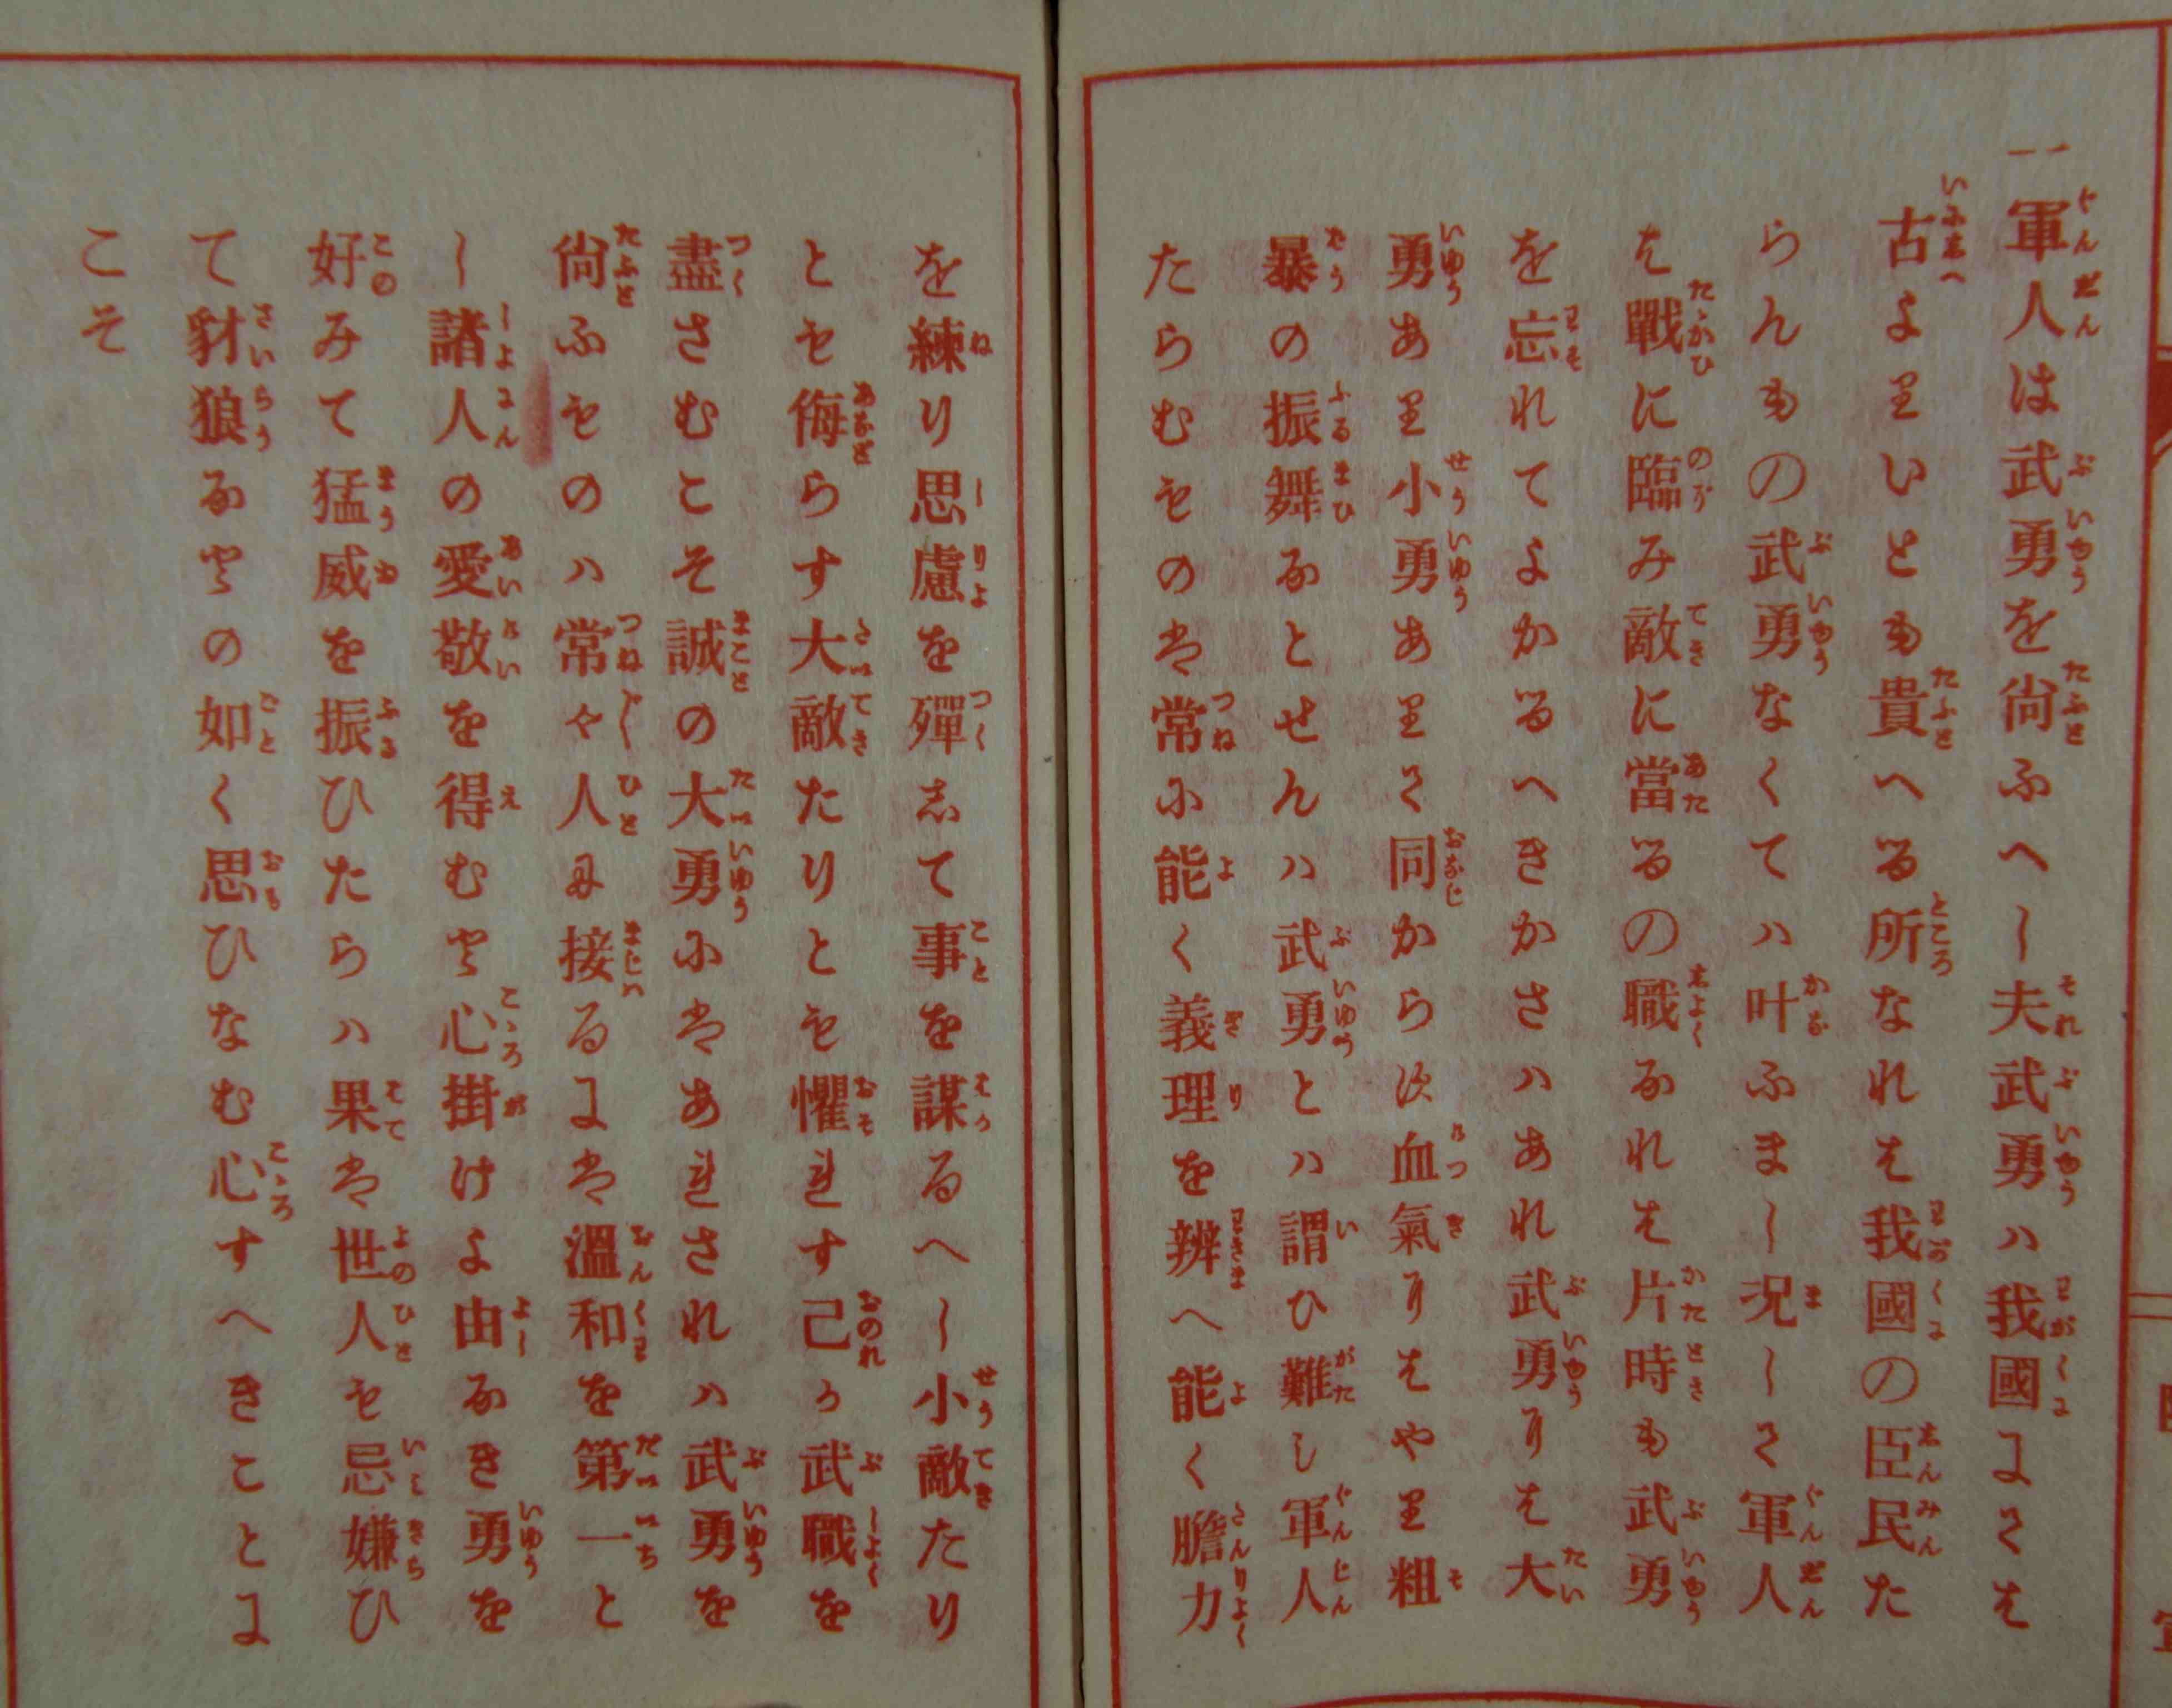 一軍人は武勇を尚ふへし夫武勇ハ我國にては
古よりいとも貴へる所なれは我國の臣民た
らんもの武勇なくてハ叶ふまし況して軍人
は戰に臨み敵に當るの職なれは片時も武勇
を忘れてよかるへきかさハあれ武勇には大
勇あり小勇ありて同からす血氣にはやり粗
暴の振舞なとせんハ武勇とハ謂ひ難し軍人
たらむものは常に能く義理を辨へ能く膽力
を練り思慮を殫して事を謀るへし小敵たり
とも侮らす大敵たりとも懼れす己か武職を
盡さむこそ誠の大勇にはあれされハ武勇を
尚ふものハ常々人に接るには溫和を第一と
し諸人の愛敬を得むと心掛けよ由なき勇を
好みて猛威を振ひたらハ果は世人も忌嫌ひ
て豺狼なとの如く思ひなむ心すへきことに
こそ